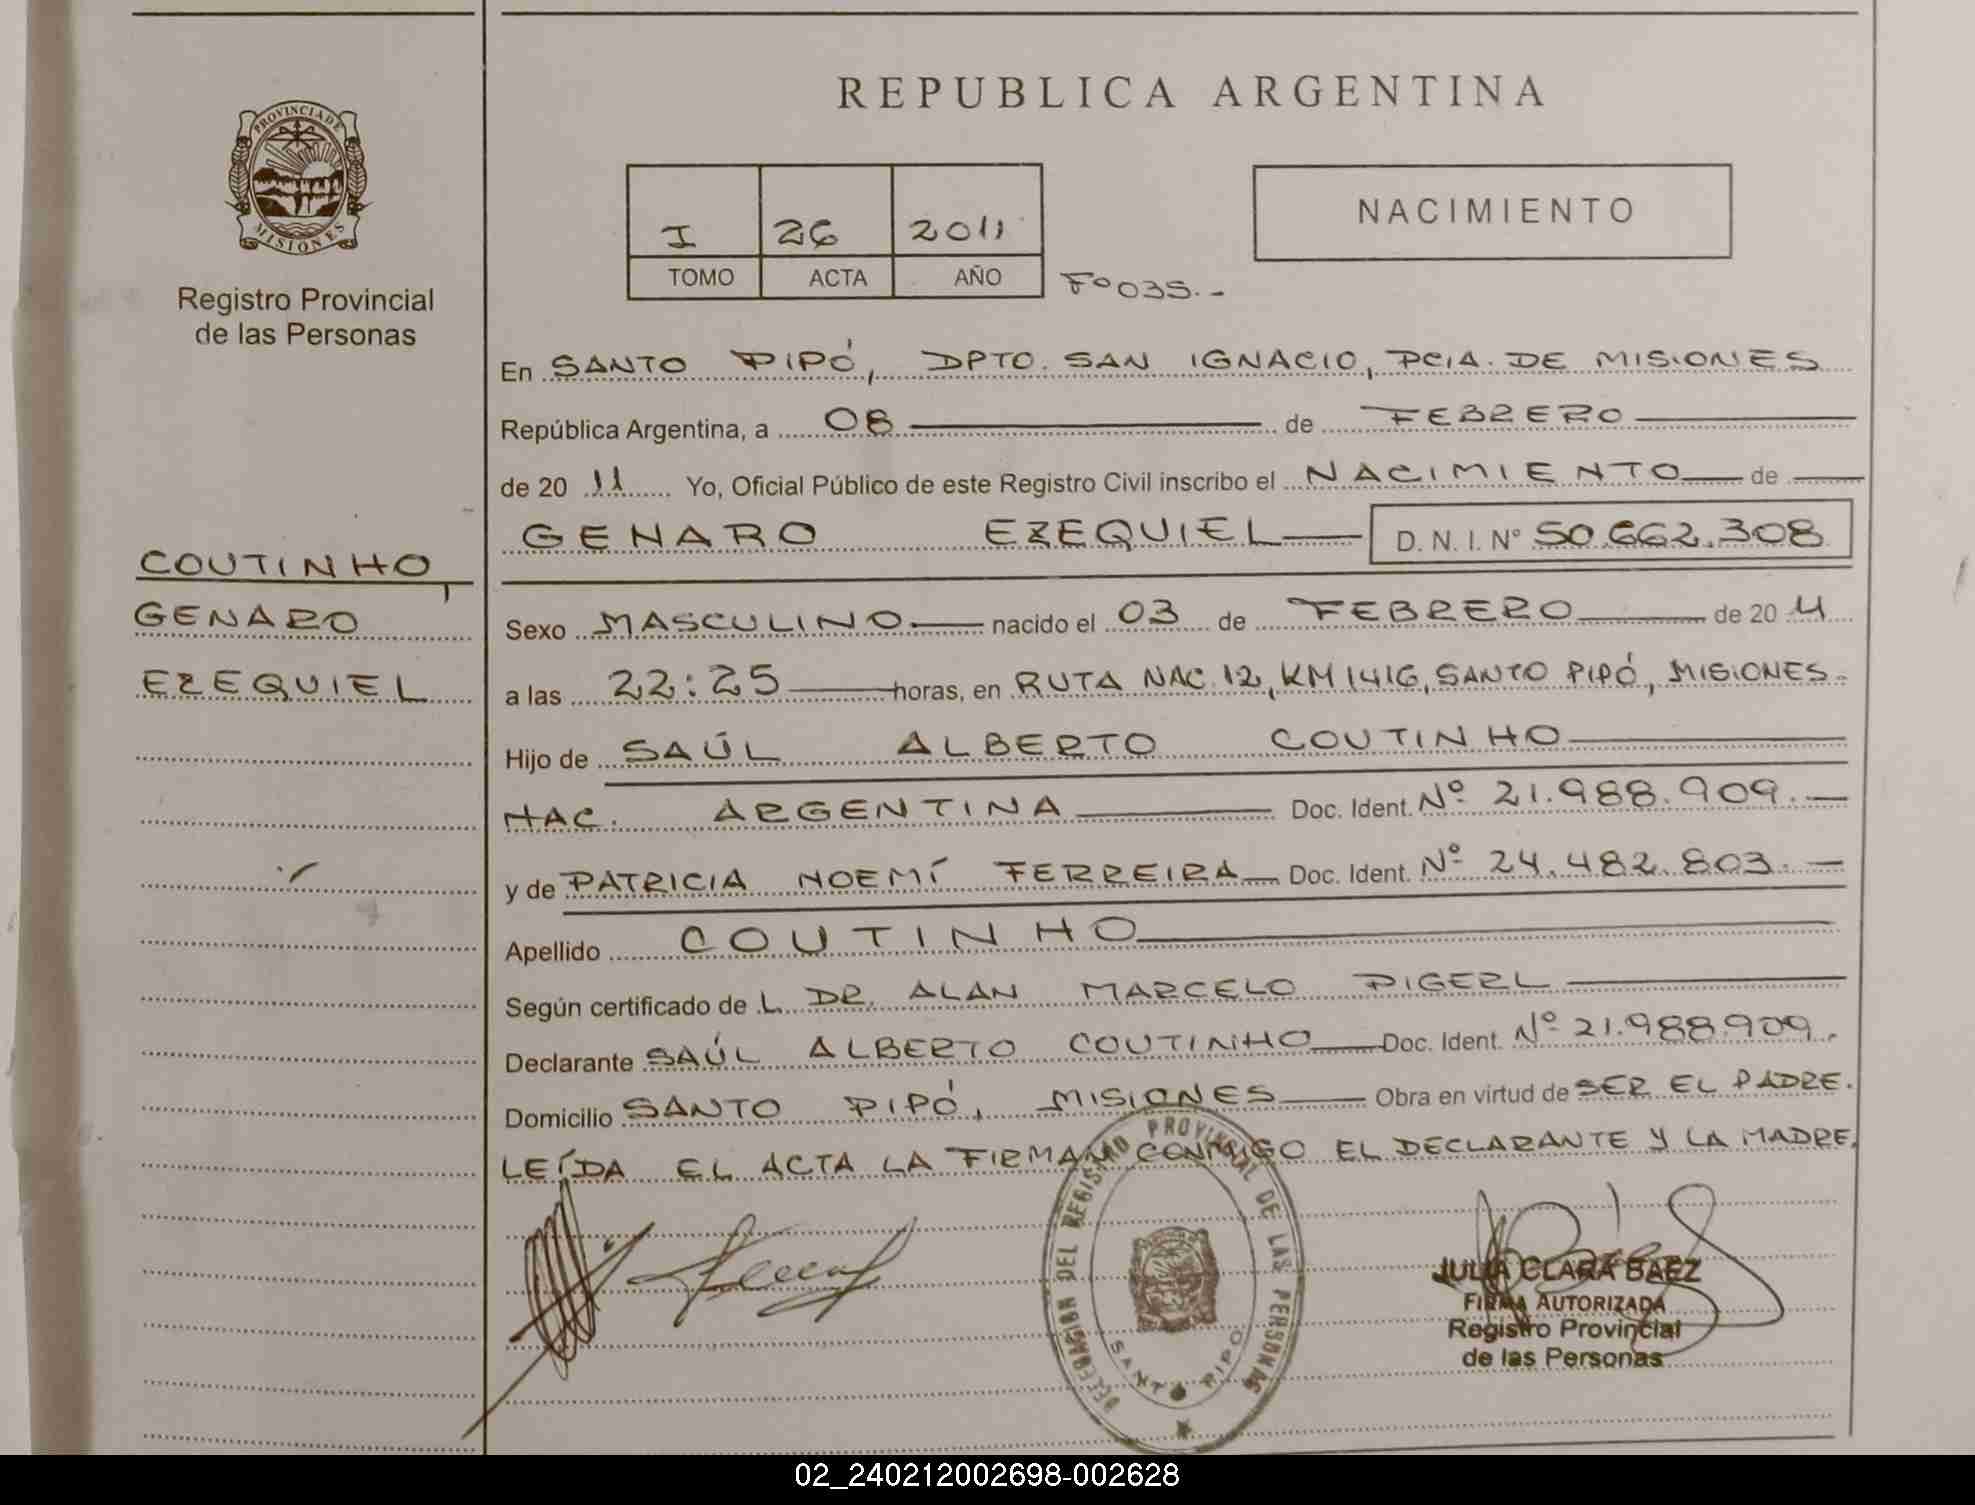 REPUBLICA ARGENTINA
PROVINCIA DE
MISIONES
Registro Provincial
de las Personas
I 26 2011
TOMO ACTA AÑO
Fº 035.-
NACIMIENTO
En SANTO PIPÓ, DPTO. SAN IGNACIO, PCIA. DE MISIONES
República Argentina, a 08 de FEBRERO
de 20 11 Yo, Oficial Público de este Registro Civil inscribo el NACIMIENTO de
GENARO EZEQUIEL D. N. I. Nº 50.662.308
COUTINHO,
GENARO
EZEQUIEL
Sexo MASCULINO nacido el 03 de FEBRERO de 20 11
a las 22:25 horas, en RUTA NAC. 12, KM 1416, SANTO PIPÓ, MISIONES.
Hijo de SAÚL ALBERTO COUTINHO
NAC. ARGENTINA Doc. Ident. Nº 21.988.909.
y de PATRICIA NOEMÍ FERREIRA Doc. Ident. Nº 24.482.803.
Apellido COUTINHO
Según certificado de L DR. ALAN MARCELO PIGERL
Declarante SAÚL ALBERTO COUTINHO Doc. Ident. Nº 21.988.909.
Domicilio SANTO PIPÓ, MISIONES Obra en virtud de SER EL PADRE.
LEÍDA EL ACTA LA FIRMAN CONMIGO EL DECLARANTE Y LA MADRE.
DELEGACION DEL REGISTRO PROVINCIAL DE LAS PERSONAS
SANTO PIPO
JULIA CLARA BAEZ
FIRMA AUTORIZADA
Registro Provincial
de las Personas
02_240212002698-002628